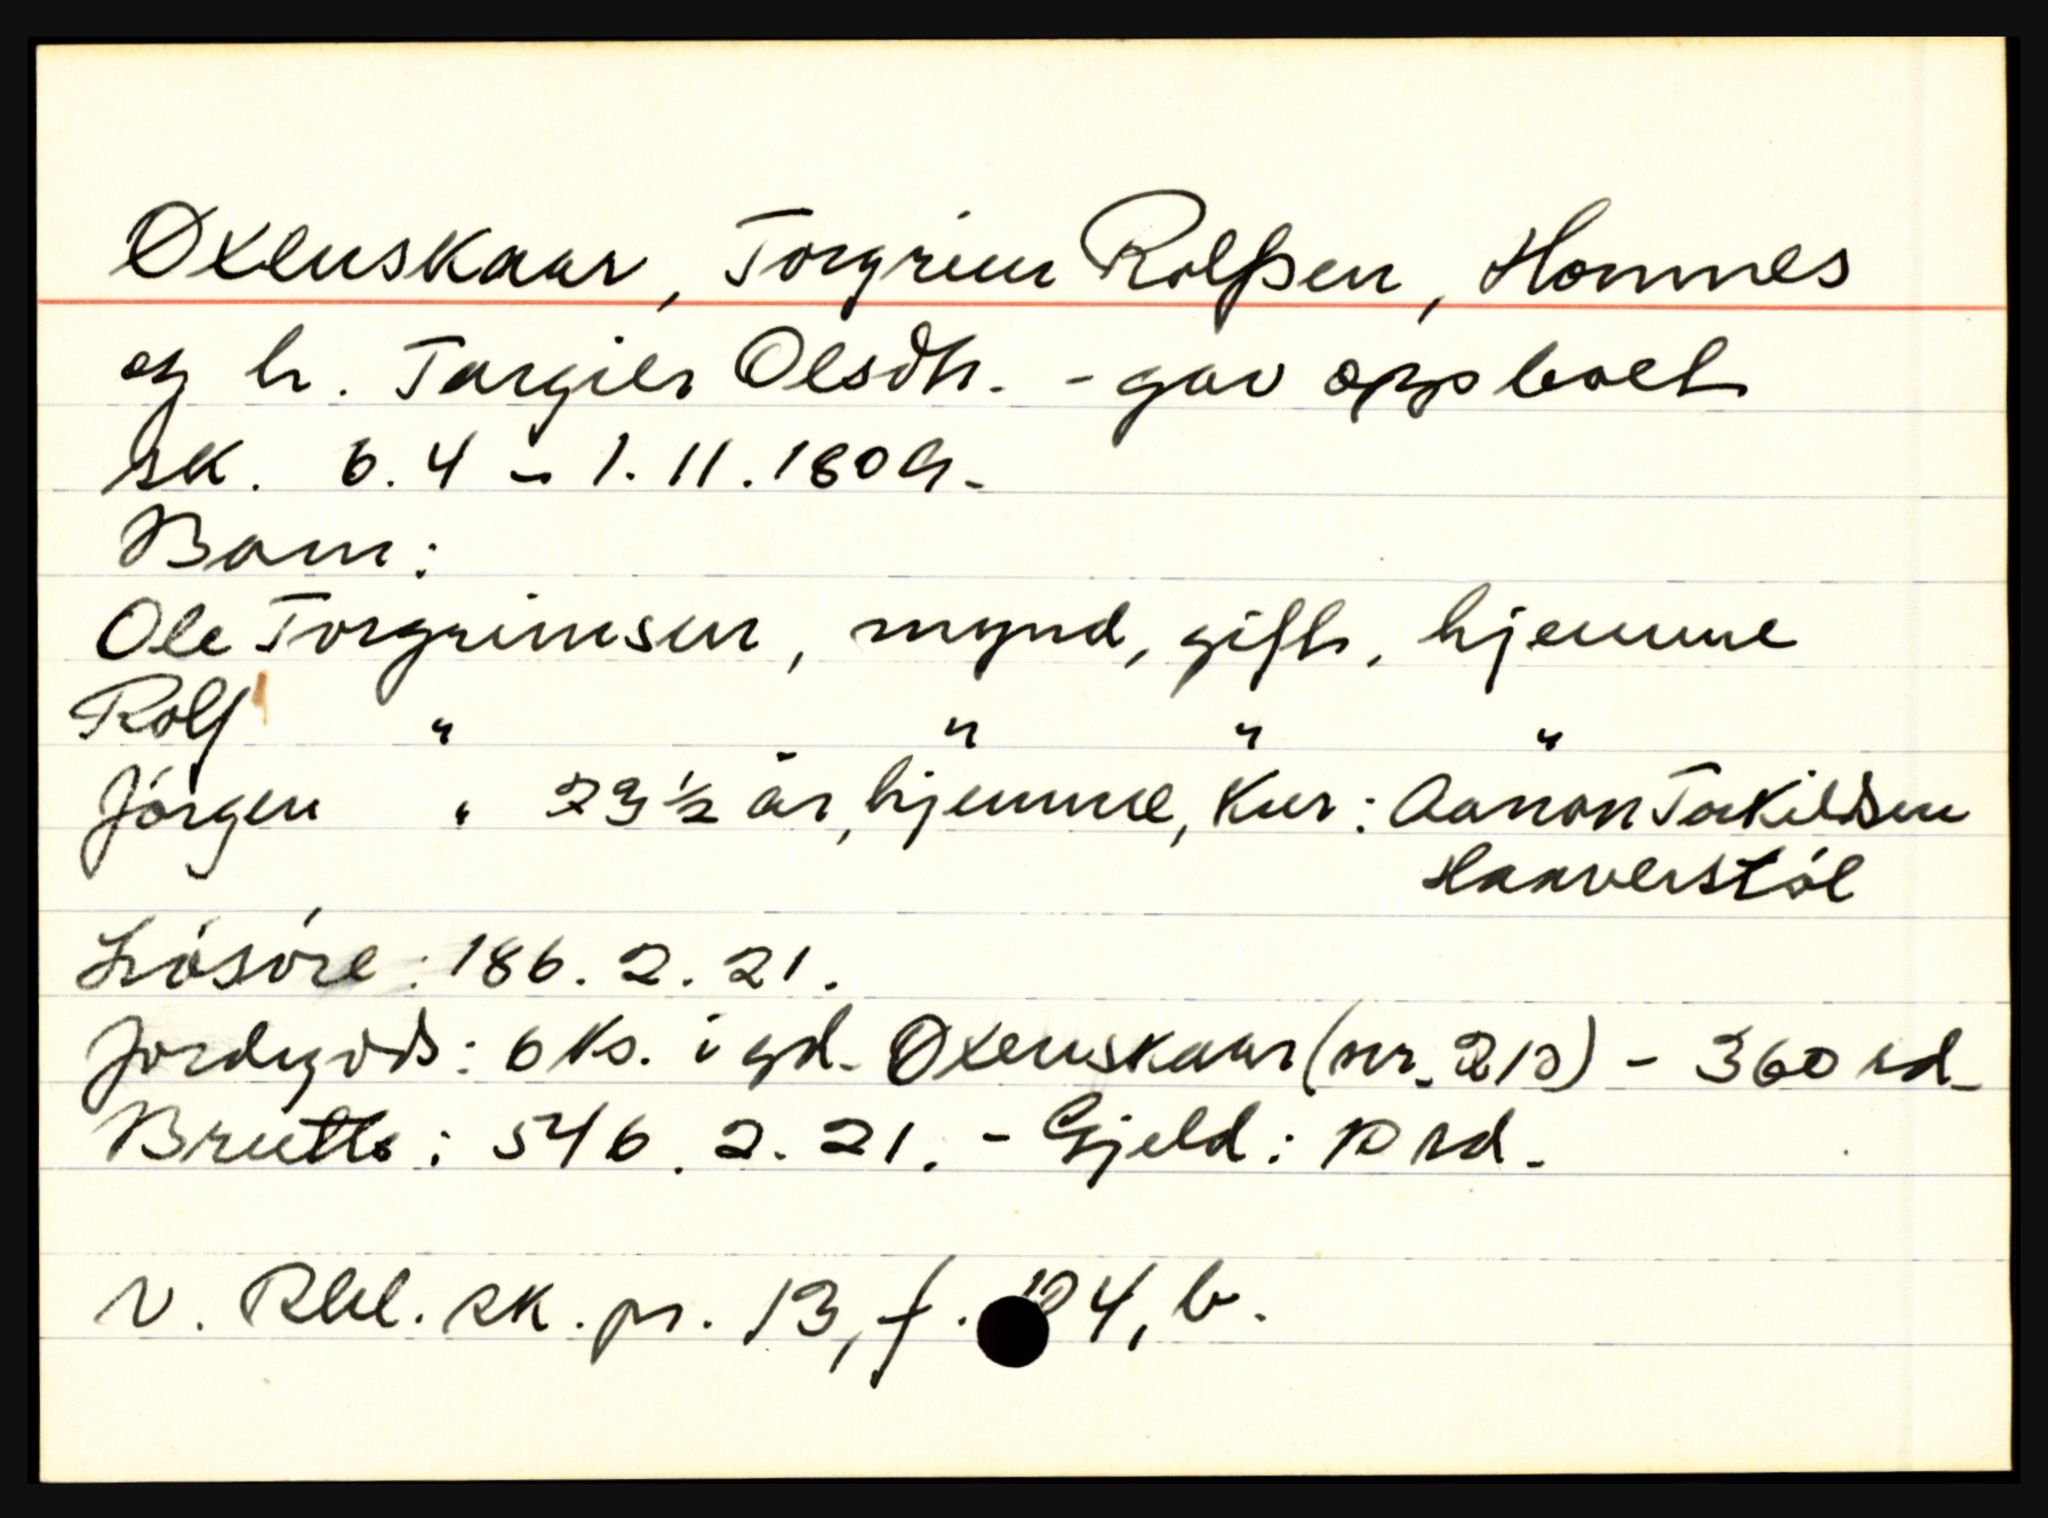 Øxenskaar, Torgrim Rolfsen, Hommes
og h. Targier Olsdtr. - gav opp boet
sk. 6.4 - 1.11.1804.
Barn:
Ole Torgrimsen, mynd, gift, hjemme
Rolf " " " "
Jörgen " 23½ år, hjemme, Kur: Aanon Torkildsen
Haaverstöl
Lösöre: 186. 2. 21.
Jordegods: 6 ks. i gd. Øxenskaar (nr. 210) - 360 rd.
Brutto: 546. 2. 21. - Gjeld: 10 rd.
V. Rbl. sk. pr. 13, f. 104, b.